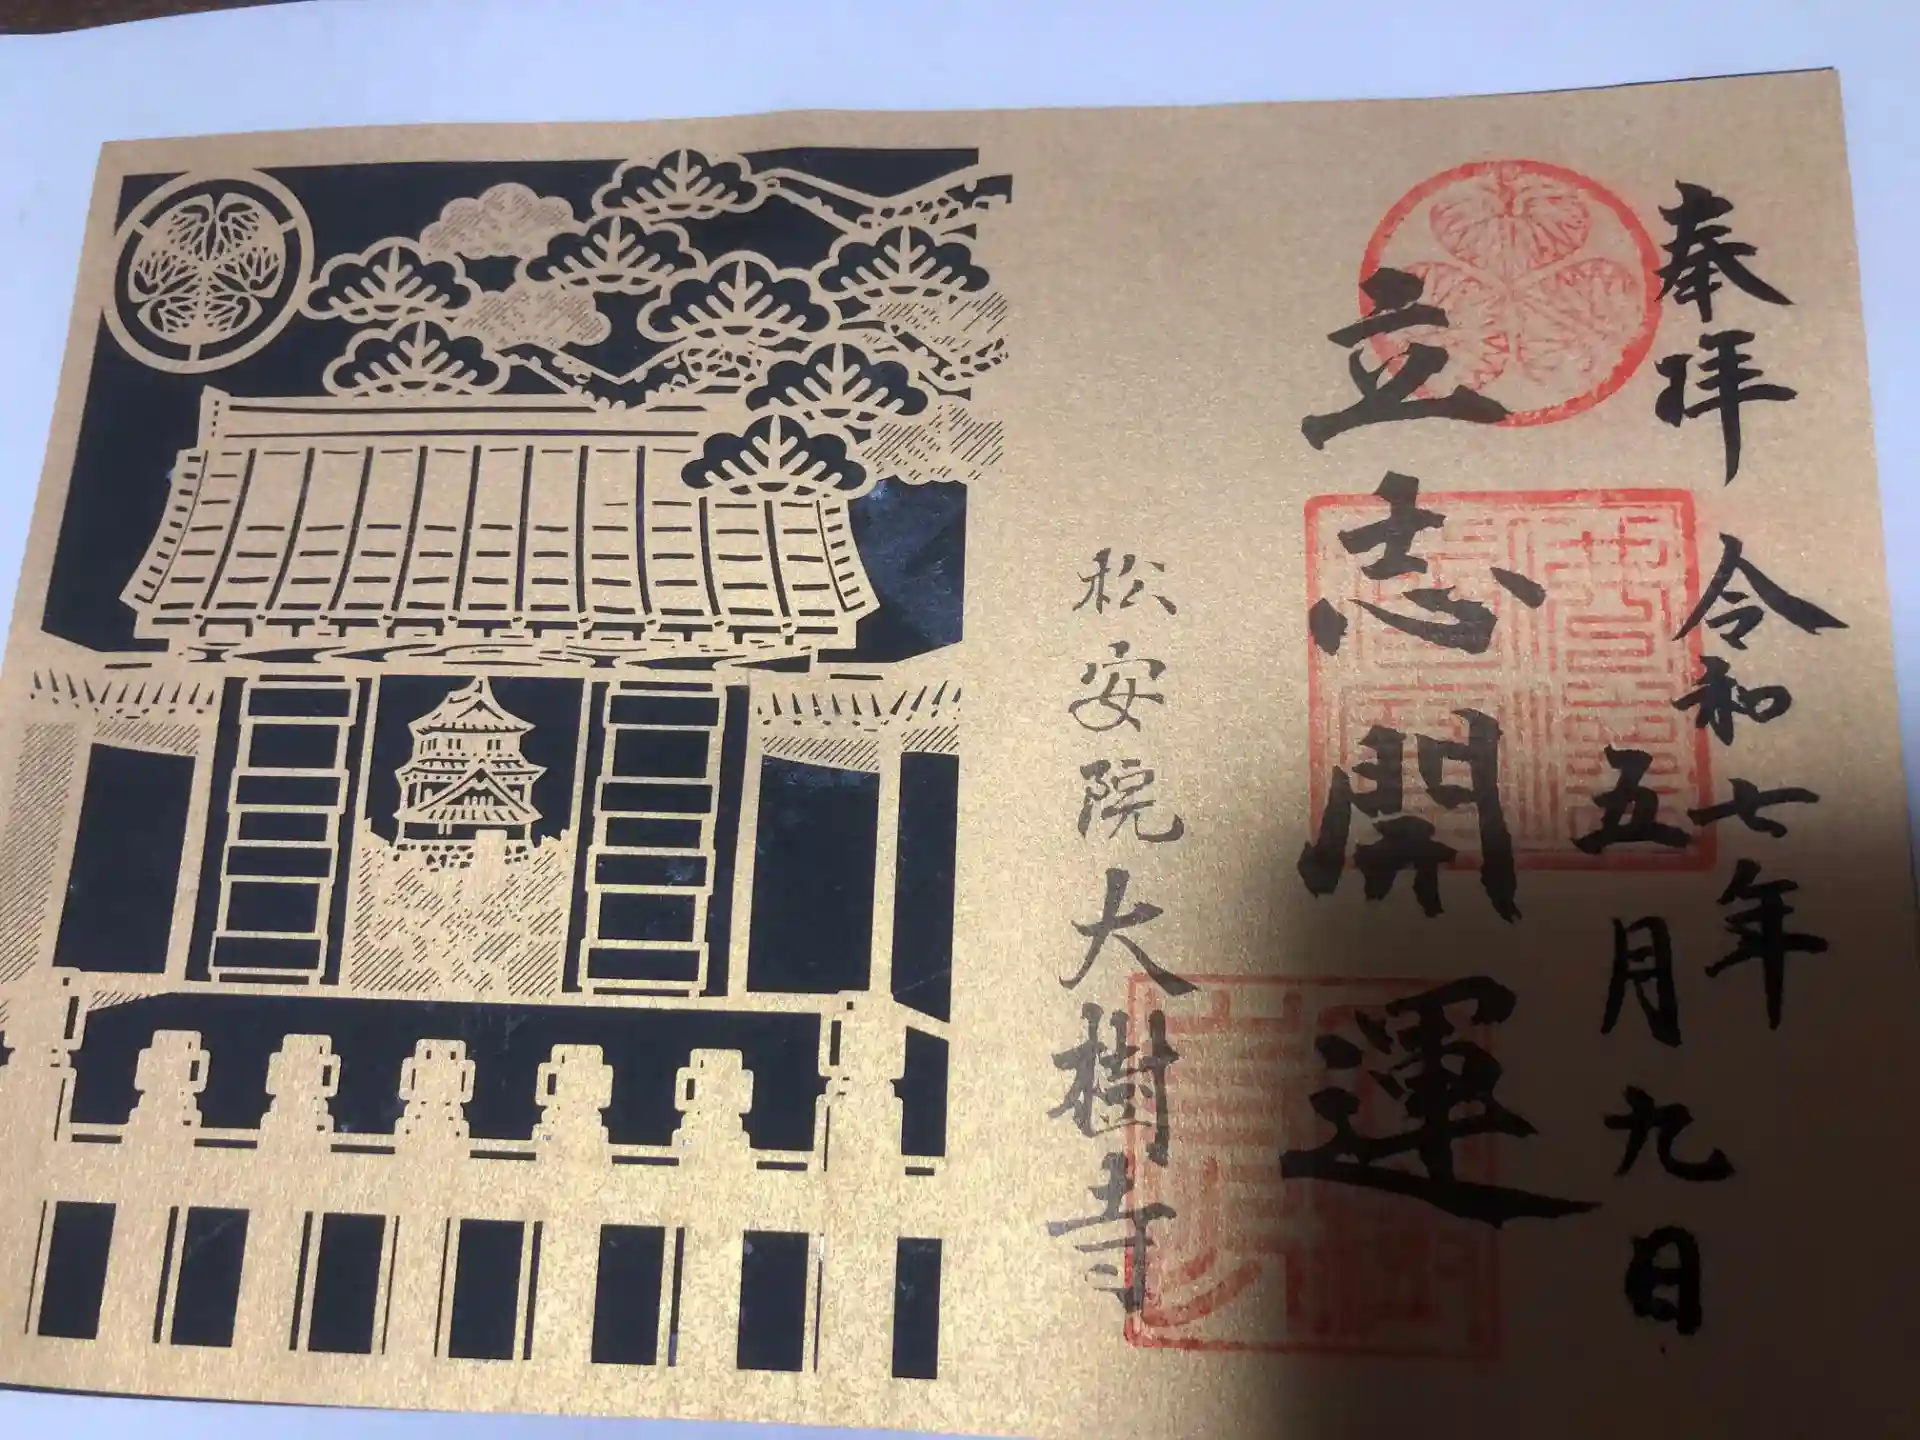 奉拝
令和七年
五月九日
立志開運
松安院大樹寺